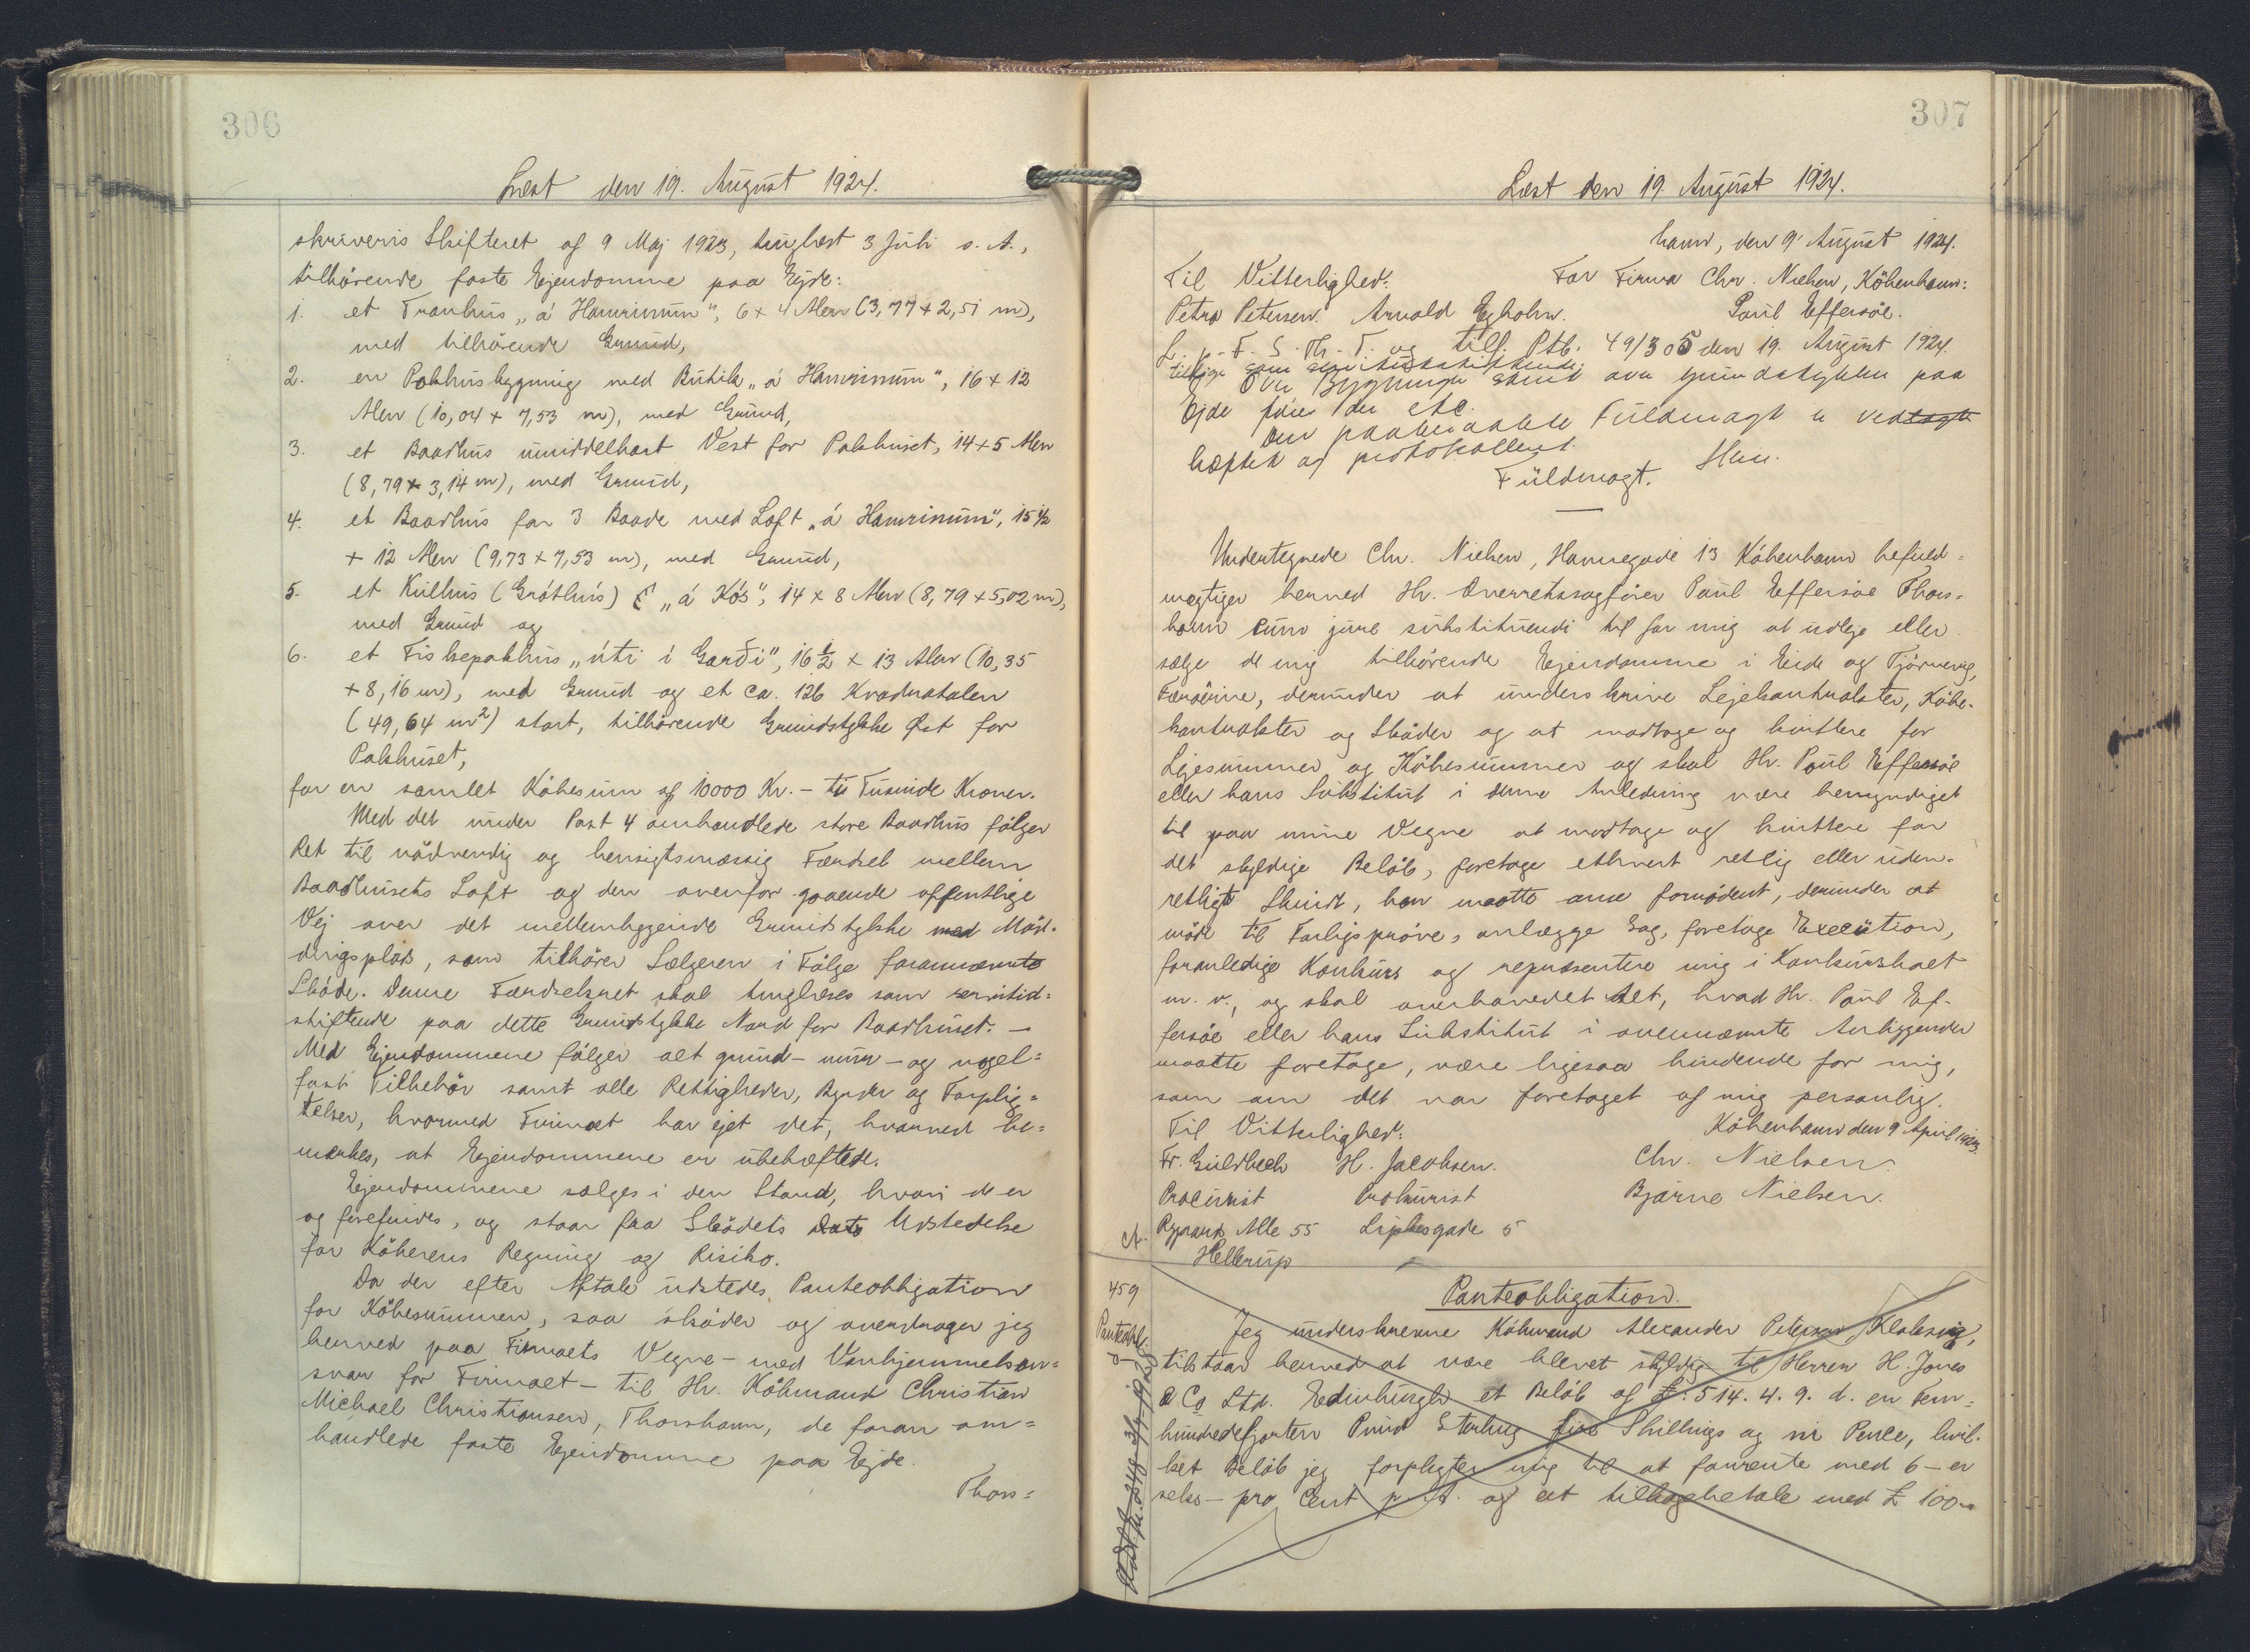 306
Læst den 19. August 1924.
skriveris Skifteret af 9 Maj 1923, tinglæst 3 Juli s. A.,
tilhörende faste Ejendomme paa Ejde:
1. et Tranhus „á Hamrinum", 6 x 4 Alen (3,77 x 2,51 m),
med tilhörende Grund,
2. en Pakhusbygning med Butik „á Hamrinum", 16 x 12
Alen (10,04 x 7,53 m), med Grund,
3. et Baadhus umiddelbart Vest for Pakhuset, 14 x 5 Alen
(8,79 x 3,14 m), med Grund,
4. et Baadhus for 3 Baade med Loft „á Hamrinum", 15 1/2
x 12 Alen (9,73 x 7,53 m), med Grund,
5. et Kulhus (Gróthús) „á Kós", 14 x 8 Alen (8,79 x 5,02 m),
med Grund og
6. et Fiskepakhus „úti í Garði", 16 1/2 x 13 Alen (10,35
x 8,16 m), med Grund og et ca. 126 Kvadratalen
(49,64 m²) stort, tilhörende Grundstykke Øst for
Pakhuset,
for en samlet Købesum af 10000 Kr. - ti Tusinde Kroner.
Med det under Post 4 omhandlede store Baadhus følger
Ret til nødvendig og hensigtsmæssig Færdsel mellem
Baadhusets Loft og den ovenfor gaaende offentlige
Vej over det mellemliggende Grundstykke med Mød-
dingsplads, som tilhører Sælgeren i Følge forannævnte
Skøde. Denne Færdselsret skal tinglæses som servitut-
stiftende paa dette Grundstykke Nord for Baadhuset. -
Med Ejendommene følger alt grund- mur- og nagel-
fast Tilbehør samt alle Rettigheder, Byrder og Forplig-
telser, hvormed Firmaet har ejet det, hvorved be-
mærkes, at Ejendommene er ubehæftede.
Ejendommene sælges i den Stand, hvori de er
og forefindes, og staar fra Skødets Dato Udstedelse
for Köberens Regning og Risiko.
Da der efter Aftale udstedes Panteobligation
for Købesummen, saa skøder og overdrager jeg
herved paa Firmaets Vegne - med Vanhjemmelsan-
svar for Firmaet - til Hr. Købmand Christian
Michael Christiansen, Thorshavn, de foran om-
handlede faste Ejendomme paa Ejde.
Thors-
307
Læst den 19. August 1924.
havn, den 9' August 1924.
Til Vitterlighed: For Firma Chr. Nielsen, København:
Petra Petersen. Arnold Egholm. Poul Effersøe.
L. p. F. S. Th. T. og tilf. Ptb. 49/305 den 19. August 1924.
tillige som servitutstiftende.
Over Bygninger samt over Grundstykker paa
Ejde føies der etc.
Den paaberaabte Fuldmagt er vedtagte
hæftet og protokolleret.
Fuldmagt.
Undertegnede Chr. Nielsen, Havnegade 13 København befuld-
mægtiger herved Hr. Overretssagfører Poul Effersøe Thors-
havn cum jure substituendi til for mig at udleje eller
sælge de mig tilhørende Ejendomme i Eide og Tjørnevig,
Færøerne, derunder at underskrive Lejekontrakter, Købe-
kontrakter og Skøder og at modtage og kvittere for
Lejesummer og Købesummer og skal Hr. Poul Effersøe
eller hans Substitut i denne Anledning være bemyndiget
til paa mine Vegne at modtage og kvittere for
det skyldige Beløb, foretage ethvert retlig eller uden-
retligt Skridt, han maatte anse fornødent, derunder at
møde til Forligsprøve, anlægge Sag, foretage Execution,
foranledige Konkurs og repræsentere mig i Konkursboet
m. v., og skal overhovedet Alt, hvad Hr. Poul Ef-
fersøe eller hans Substitut i ovennævnte Anliggender
maatte foretage, være ligesaa bindende for mig,
som om det var foretaget af mig personlig.
Til Vitterlighed: København den 9 April 1923.
Fr. Guldbech H. Jacobsen. Chr. Nielsen.
Procurist Prokurist Bjarne Nielsen.
Alle 55 5
Hellerup
459
Panteobl.
Panteobligation.
Jeg underskrevne Købmand Alexander Petersen Klaksvig,
tilstaar herved at være blevet skyldig til Herren H. Jones
& Co Ltd. Edinburgh et Beløb af £. 514. 4. 9. d. en Fem-
hundredefjorten Pund Sterling fire Shillings og ni Pence, hvil-
ket Beløb jeg forpligter mig til at forrente med 6 - er
seks - pro Cent p. A. og at tilbagebetale med £ 100